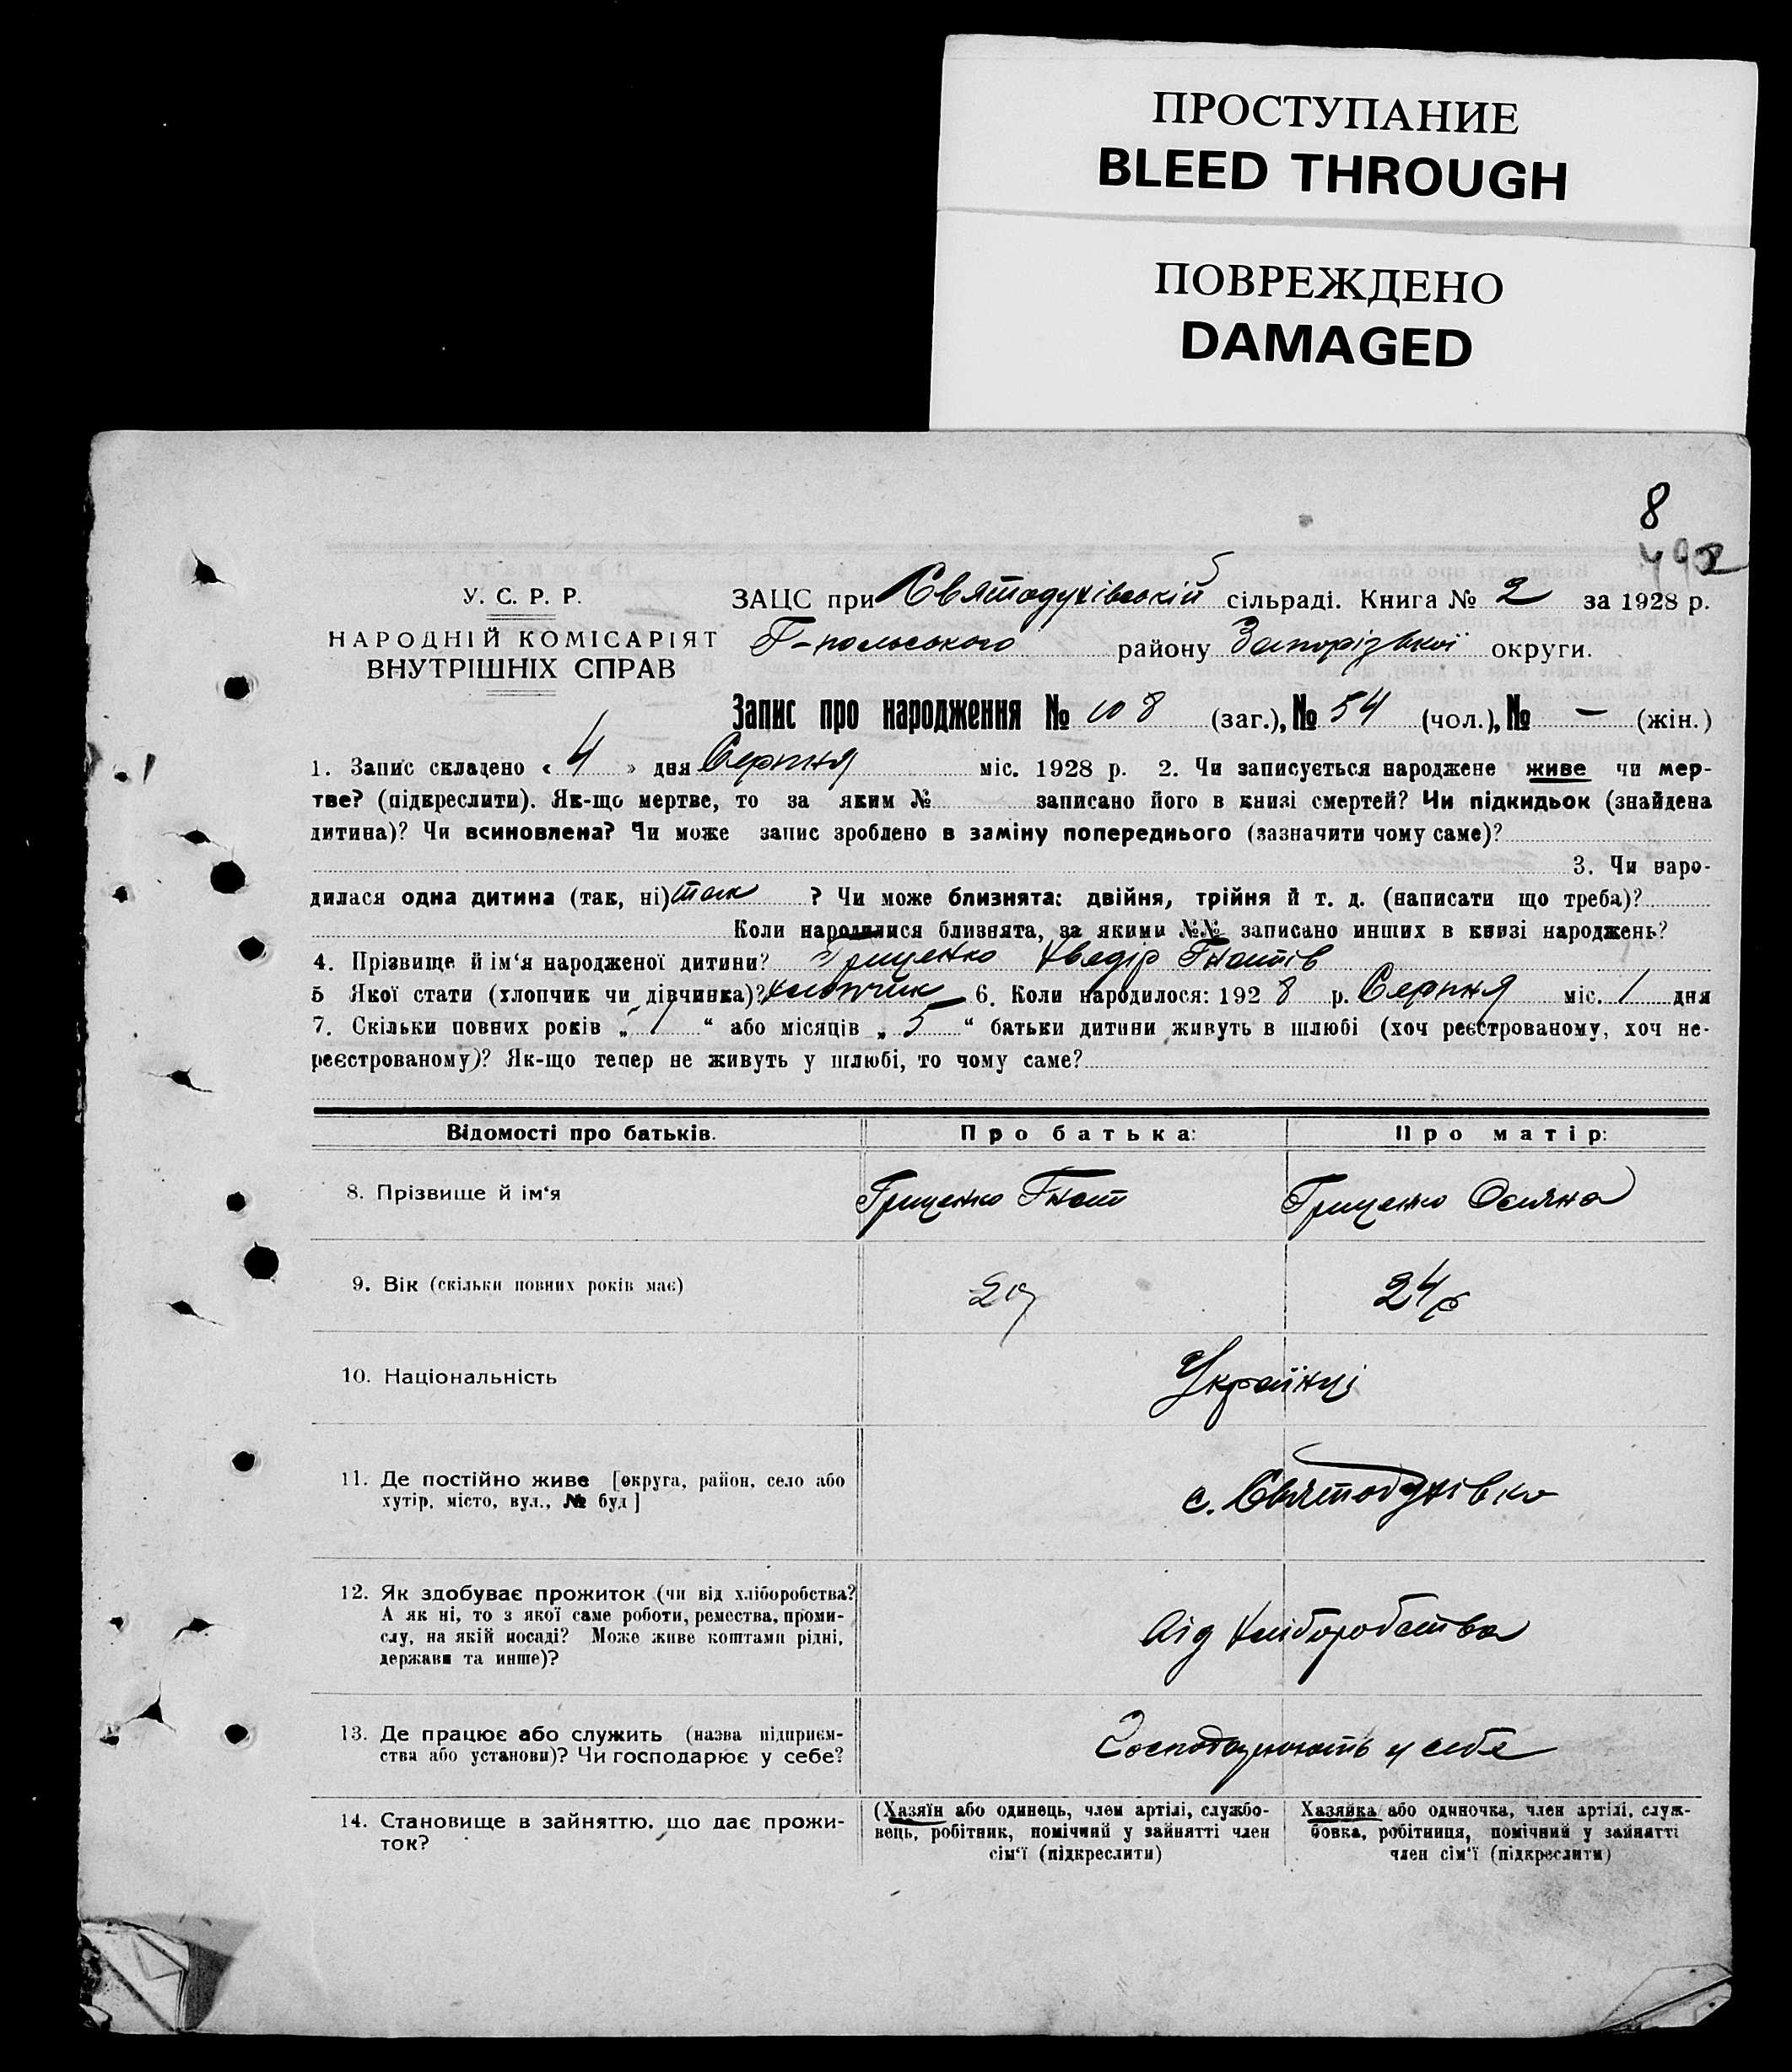 ПРОСТУПАНИЕ
BLEED THROUGH
ПОВРЕЖДЕНО
DAMAGED
8
492
У. С. Р. Р.
НАРОДНІЙ КОМІСАРІЯТ
ВНУТРІШНІХ СПРАВ
ЗАЦС при Святодухівській сільраді. Книга № 2 за 1928 р.
Г-польського району Запорізької округи.
Запис про народження № 108 (заг.), № 54 (чол.), № – (жін.)
1. Запис складено « 4 » дня Серпня міс. 1928 р. 2. Чи записується народжене живе чи мер-
тве? (підкреслити). Як-що мертве, то за яким № записано його в книзі смертей? Чи підкидьок (знайдена
дитина)? Чи всиновлена? Чи може запис зроблено в заміну попереднього (зазначити чому саме)?
3. Чи наро-
дилася одна дитина (так, ні) так ? Чи може близнята: двійня, трійня й т. д. (написати що треба)?
Коли народилися близнята, за якими №№ записано инших в книзі народжень?
4. Прізвище й ім‘я народженої дитини? Грищенко Хведір Гнатів
5 Якої стати (хлопчик чи дівчинка)? хлопчик 6. Коли народилося: 192 8 р. Серпня міс. 1 дня
7. Скільки повних років „ 1 “ або місяців „ 5 “ батьки дитини живуть в шлюбі (хоч реєстрованому, хоч не-
реєстрованому)? Як-що тепер не живуть у шлюбі, то чому саме?
Відомості про батьків. Про батька: Про матір:
8. Прізвище й ім‘я Грищенко Гнат Грищенко Оксана
9. Вік (скільки повних років має) 24
10. Національність Українці
11. Де постійно живе [округа, район, село або
хутір, місто, вул., № буд]
с. Святодухівка
12. Як здобуває прожиток (чи від хліборобства?
А як ні, то з якої саме роботи, ремества, проми-
слу, на якій посаді? Може живе коштами рідні,
держави та инше)?
Від хліборобства
13. Де працює або служить (назва підприєм-
ства або установи)? Чи господарює у себе?
Господарюють у себе
14. Становище в зайняттю, що дає прожи-
ток?
(Хазяїн або одинець, член артілі, службо-
вець, робітник, помічний у зайнятті член
сім‘ї (підкреслити)
Хазяйка або одиночка, член артілі, служ-
бовка, робітниця, помічний у зайнятті
член сім‘ї (підкреслити)